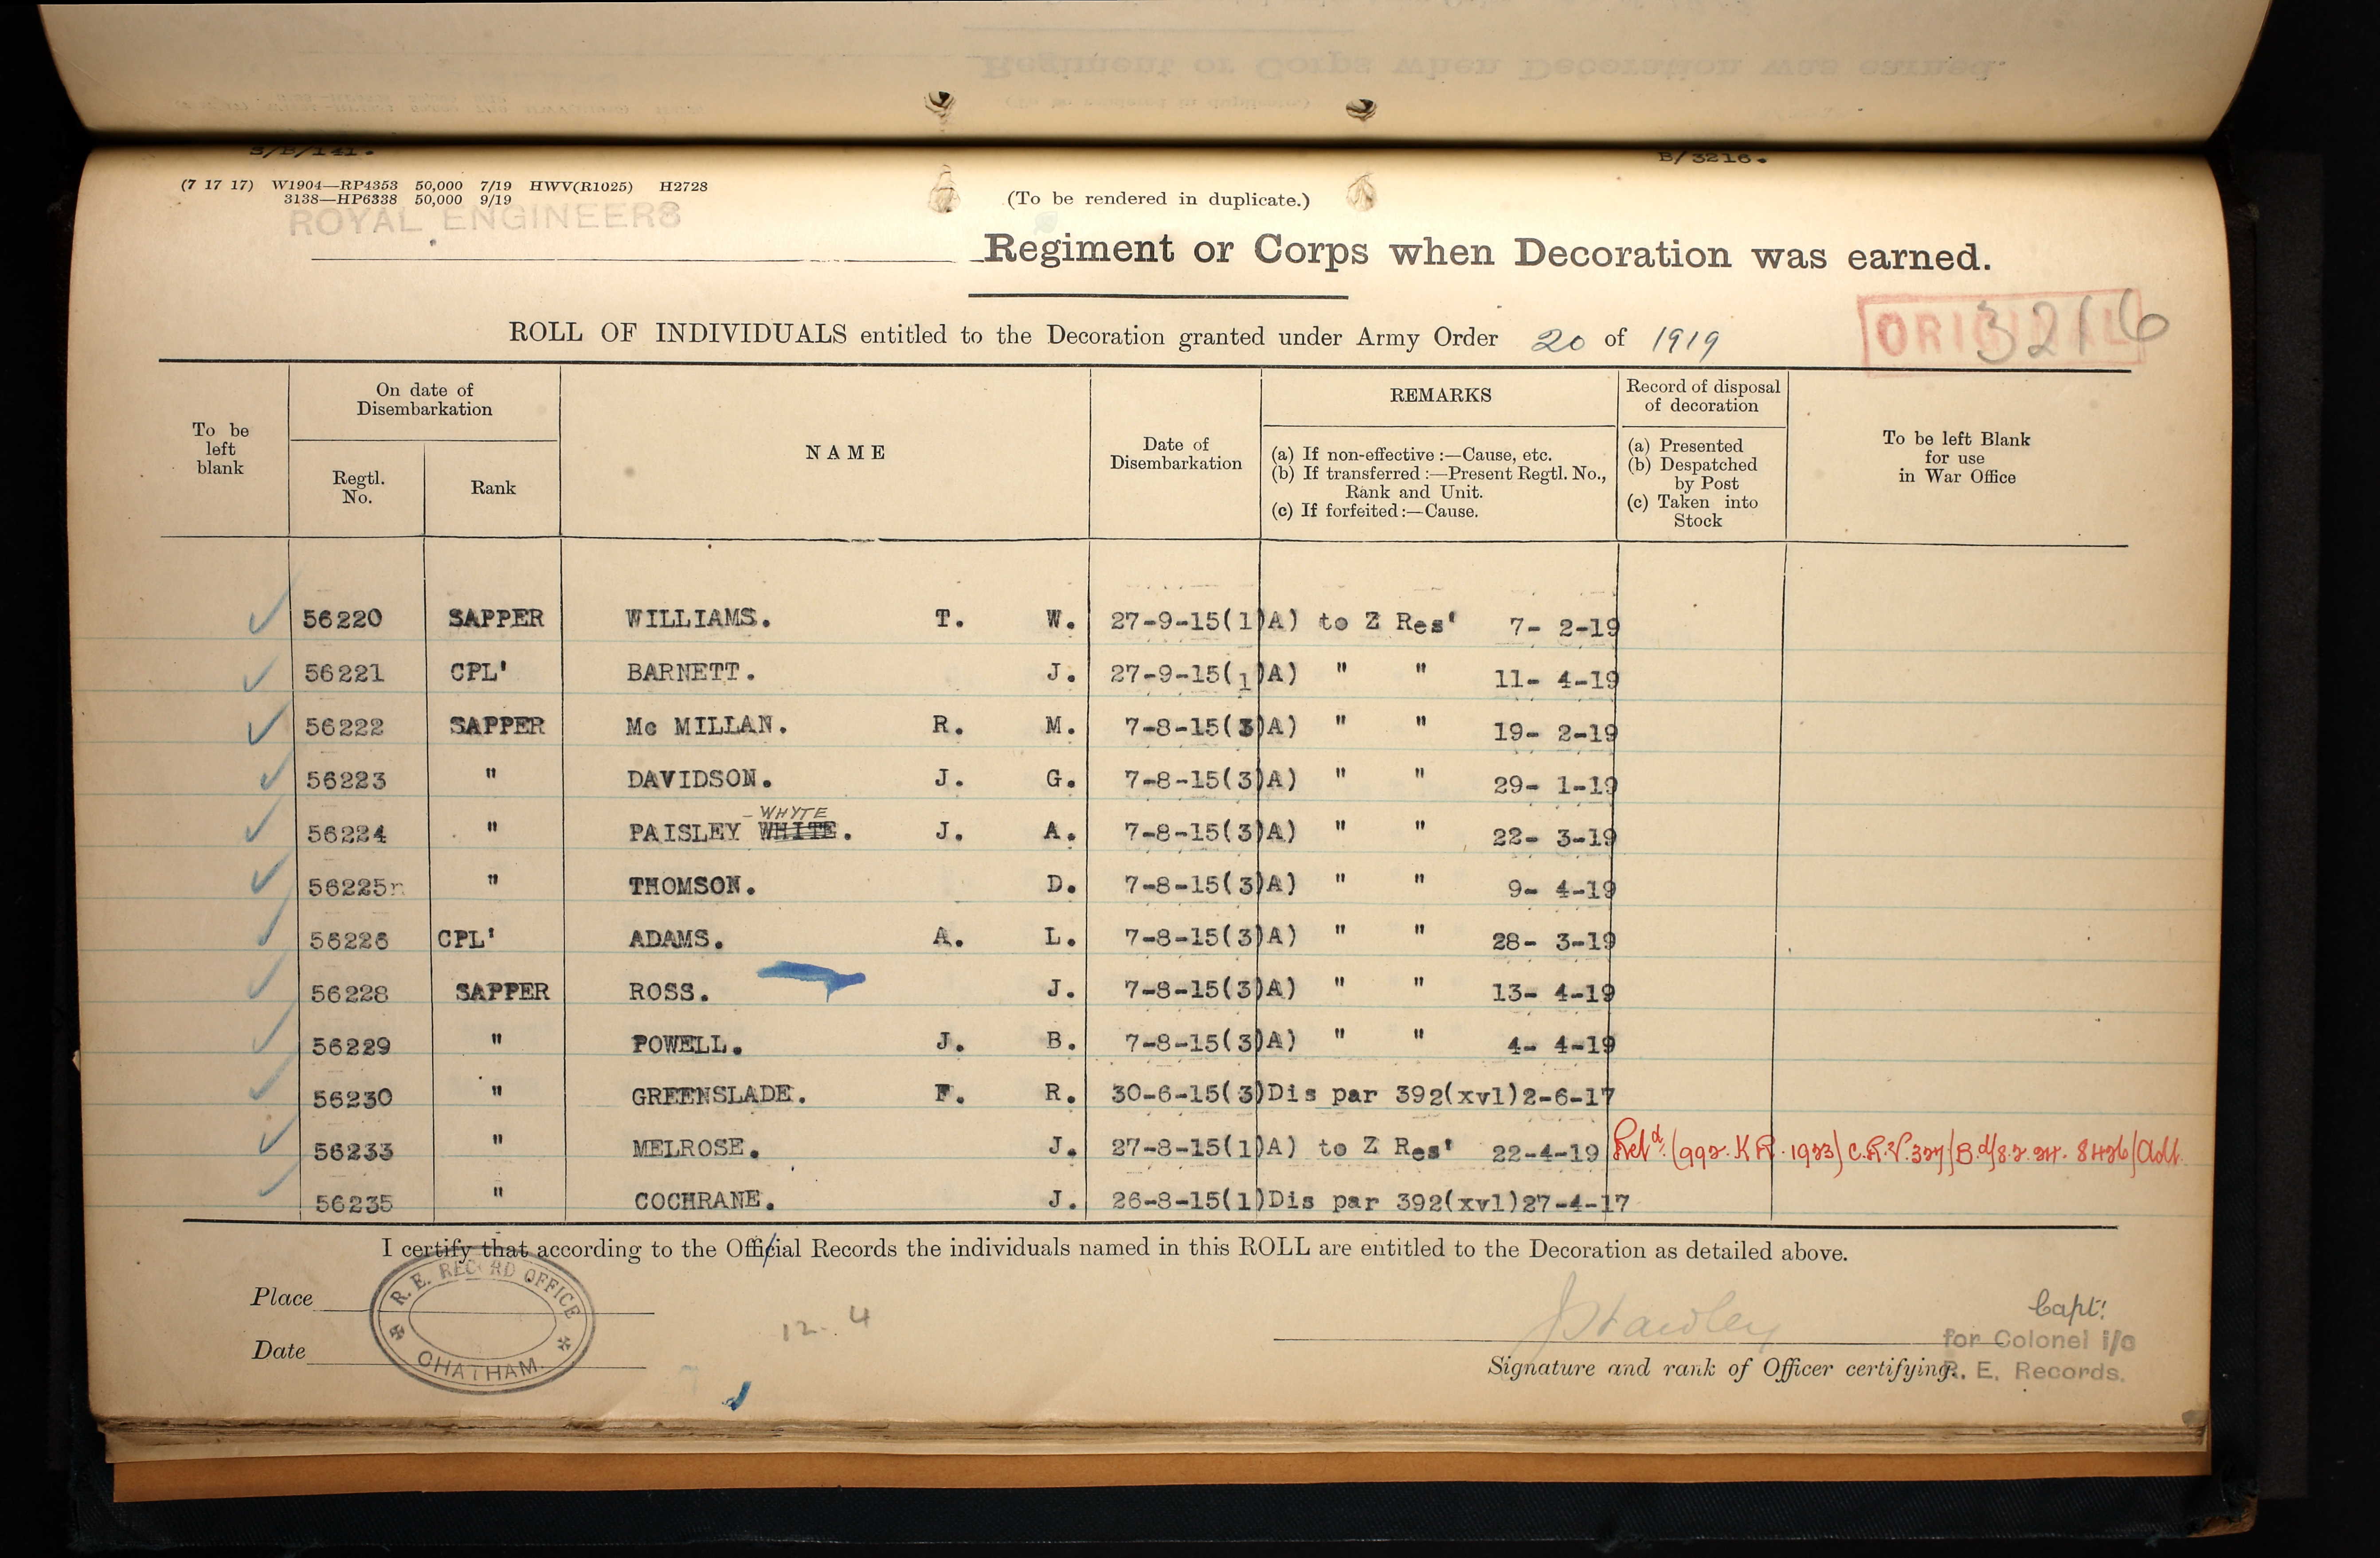 S/B/141.
B/3216.
(7 17 17) W1904—RP4353 50,000 7/19 HWV(R1025) H2728
3138—HP6338 50,000 9/19
(To be rendered in duplicate.)
ROYAL ENGINEERS
Regiment or Corps when Decoration was earned.
ORIGINAL
3216
ROLL OF INDIVIDUALS entitled to the Decoration granted under Army Order 20 of 1919
To be left blank
On date of Disembarkation
Regtl. No.
Rank
NAME
Date of Disembarkation
REMARKS
(a) If non-effective :—Cause, etc.
(b) If transferred :—Present Regtl. No., Rank and Unit.
(c) If forfeited :—Cause.
Record of disposal of decoration
(a) Presented
(b) Despatched by Post
(c) Taken into Stock
To be left Blank for use in War Office
56220 SAPPER WILLIAMS. T. W. 27-9-15(1)A) to Z Res' 7- 2-19
56221 CPL' BARNETT. J. 27-9-15(1)A) " " 11- 4-19
56222 SAPPER Mc MILLAN. R. M. 7-8-15(3)A) " " 19- 2-19
56223 " DAVIDSON. J. G. 7-8-15(3)A) " " 29- 1-19
- WHYTE
56224 " PAISLEY WHITE. J. A. 7-8-15(3)A) " " 22- 3-19
56225 " THOMSON. D. 7-8-15(3)A) " " 9- 4-19
56226 CPL' ADAMS. A. L. 7-8-15(3)A) " " 28- 3-19
56228 SAPPER ROSS. J. 7-8-15(3)A) " " 13- 4-19
56229 " POWELL. J. B. 7-8-15(3)A) " " 4- 4-19
56230 " GREENSLADE. F. R. 30-6-15(3)Dis par 392(xvl)2-6-17
56233 " MELROSE. J. 27-8-15(1)A) to Z Res' 22-4-19 Retd. (992. K R. 1923) C.R.V. 327/
56235 " COCHRANE. J. 26-8-15(1)Dis par 392(xvl)27-4-17
I certify that according to the Official Records the individuals named in this ROLL are entitled to the Decoration as detailed above.
Place
R. E. RECORD OFFICE
CHATHAM.
Date
12. 4
Capt:
for Colonel i/c
R. E. Records.
Signature and rank of Officer certifying.